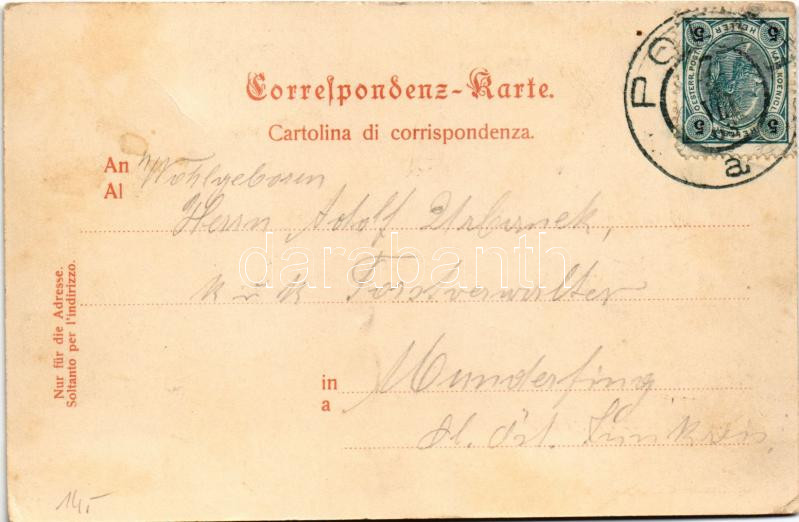 Correspondenz-Karte.
Cartolina di corrispondenza.
An Wohlgeboren
Al
Herrn Adolf Urbanek,
k u k Forstverwalter
in Munderfing
a
Nur für die Adresse.
Soltanto per l'indirizzo.
5 5
HELLER
KAIS. KOENIGL.
OESTERR. POST
5 5
PO
a
darabanth
14,-